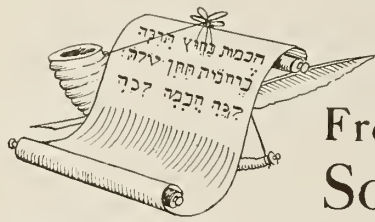 חכמות בחוץ תרנה
ברחבות תתן קולה
חכמה
Fro
So